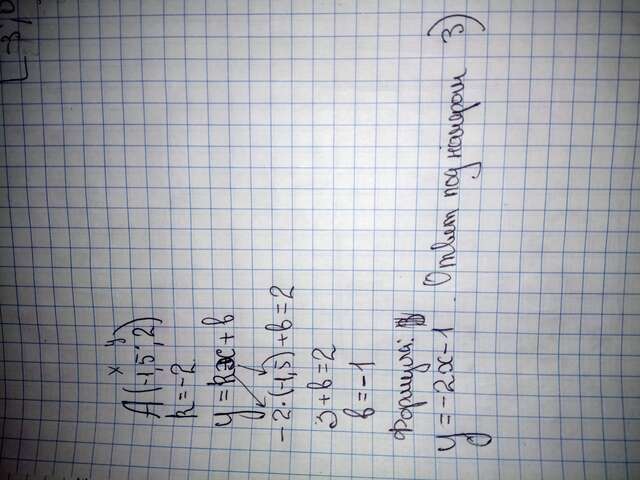 x y
A(-1,5; 2)
k=-2
y=kx+в
-2·(-1,5)+в=2
3+в=2
в=-1
Формулой:
y=-2x-1. Ответ под номером 3)